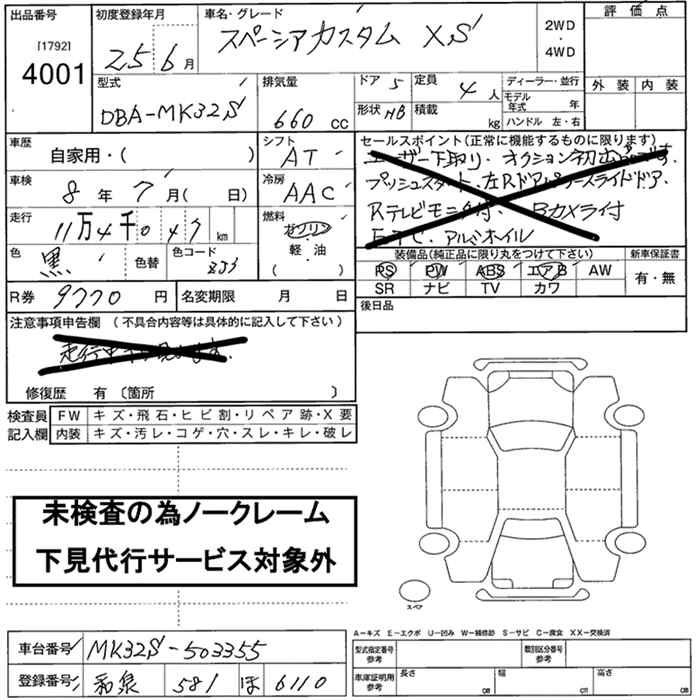 出品番号
[1792]
4001
初度登録年月
25 6月
車名・グレード
スペーシアカスタム XS
2WD
・
4WD
評価点
外装 内装
型式
DBA-MK32S
排気量
660 cc
ドア 5
定員 4人
形状 HB
積載 kg
ディーラー・並行
モデル年式 年
ハンドル 左・右
車歴
自家用・( )
シフト
AT
車検
8年 7月( 日)
冷房
AAC
走行
11万4千047km
燃料
ガソリン
軽・油
( )
色
黒
色替
色コード
ZJ3
R券 9770円
名変期限 月 日
セールスポイント(正常に機能するものに限ります)
ユーザー下取り、オクション初出品です。
プッシュスタート、左Rドアパワースライドドア、
Rテレビモニタ付、Bカメラ付
ETC、アルミホイル
装備品(純正品に限り丸をつけて下さい)
PS PW ABS エアB AW
SR ナビ TV カワ
新車保証書
有・無
後日品
注意事項申告欄 (不具合内容等は具体的に記入して下さい)
修復歴 有〔箇所 〕
検査員記入欄
FW キズ・飛石・ヒビ割・リペア跡・X要
内装 キズ・汚レ・コゲ・穴・スレ・キレ・破レ
未検査の為ノークレーム
下見代行サービス対象外
スペア
A−キズ E−エクボ U−凹み W−補修跡 S−サビ C−腐食 XX−交換済
車台番号 MK32S-503355
登録番号 和泉 581 ほ 6110
型式指定番号 参考
類別区分番号 参考
車庫証明用 参考
長さ cm 幅 cm 高さ cm